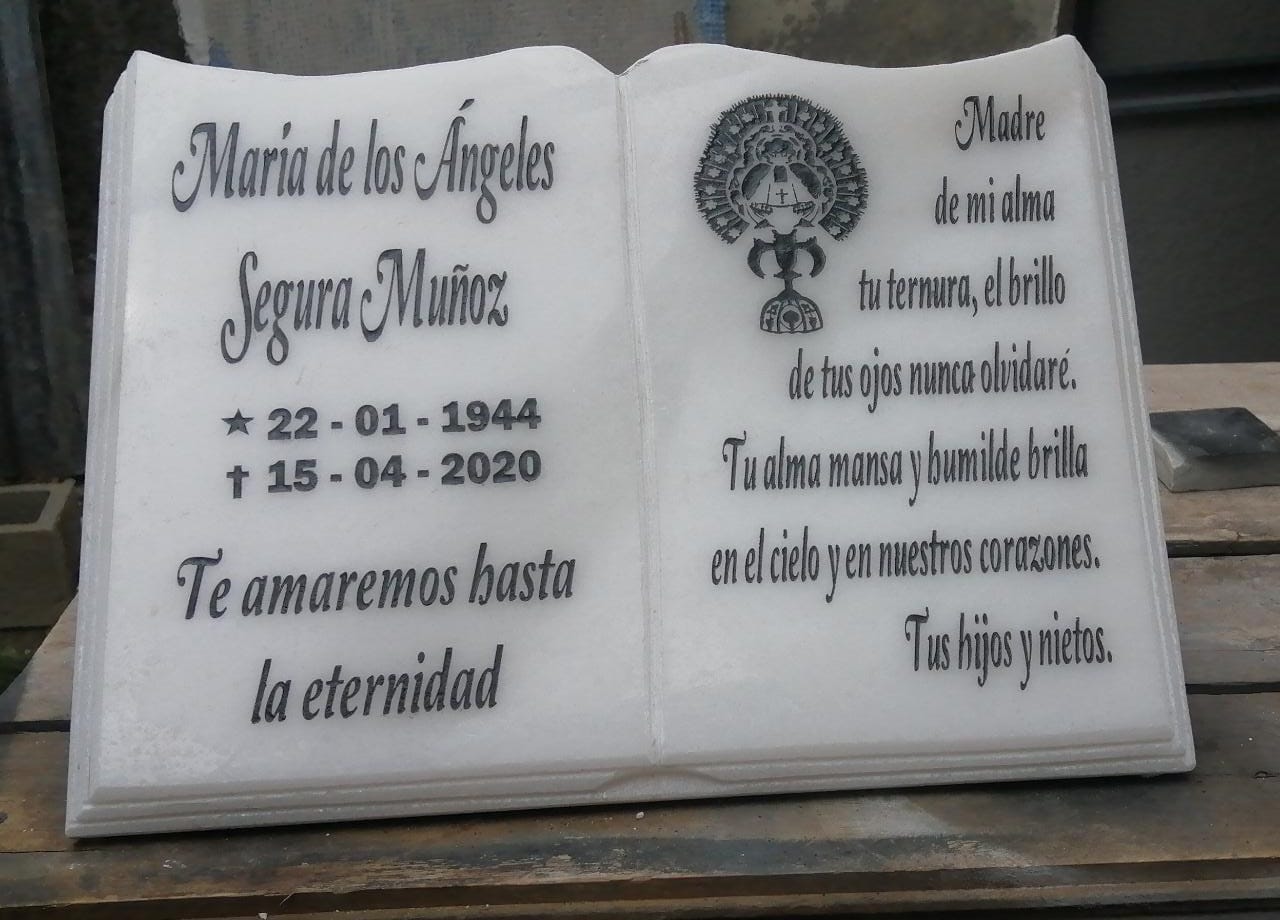 María de los Ángeles
Segura Muñoz
★ 22 - 01 - 1944
✝ 15 - 04 - 2020
Te amaremos hasta
la eternidad
Madre
de mi alma
tu ternura, el brillo
de tus ojos nunca olvidaré.
Tu alma mansa y humilde brilla
en el cielo y en nuestros corazones.
Tus hijos y nietos.